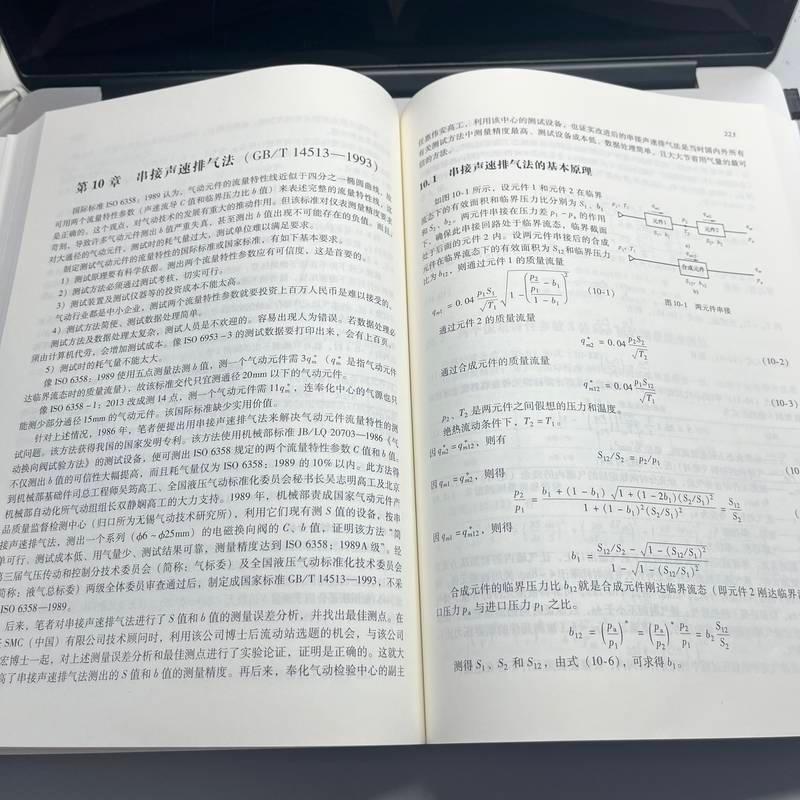 第 10 章 串接声速排气法（GB/T 14513—1993）
国际标准 ISO 6358：1989 认为，气动元件的流量特性线近似于四分之一椭圆曲线，故
可用两个流量特性参数（声速流导 C 值和临界压力比 b 值）来表述完整的流量特性线，这
是正确的。这个观点，对气动技术的发展有重大的推动作用。但该标准对仪表测量精度要求
苛刻，导致许多气动元件测出 b 值严重失真，甚至测出 b 值出现不可能存在的负值。而且，
对大通径的气动元件，测试时的耗气量过大，测试单位难以满足要求。
制定测试气动元件的流量特性的国际标准或国家标准，有如下基本要求。
1）测试原理要有科学依据。测出两个流量特性参数应有可信度，这是首要的。
2）测试方法必须通过测试考核，切实可行。
3）测试装置及测试仪器等的投资成本不能太高。
气动行业都是中小企业，测试两个流量特性参数就要投资上百万人民币是难以接受的。
4）测试方法简便、测试数据处理简单。
测试方法及数据处理太复杂，测试人员是不欢迎的。容易出现人为错误。若数据处理必
须由计算机代劳，会增加测试成本。像 ISO 6953－3 的测试数据要打印出来，会有上百页。
5）测试时的耗气量不能太大。
像 ISO 6358：1989 使用五点测量法测 b 值，测一个气动元件需 3q*m（q*m 是指气动元件
达临界流态时的质量流量），故该标准交代只宜测通径 20mm 以下的气动元件。
像 ISO 6358－1：2013 改成测 14 点，测一个气动元件需 11q*m，连奉化中心的气源也只
能测少部分通径 15mm 的气动元件。该国际标准缺少实用价值。
针对上述情况，1986 年，笔者便提出用串接声速排气法来解决气动元件流量特性的测
试问题。该方法获得我国的国家发明专利。该方法使用机械部标准 JB/LQ 20703—1986《气
动换向阀试验方法》的测试设备，便可测出 ISO 6358 规定的两个流量特性参数 C 值和 b 值。
不仅测出 b 值的可信性大幅提高，而且耗气量仅为 ISO 6358：1989 的 10% 以内。此方法得
到机械部基础件司总工程师吴筠高工、全国液压气动标准化委员会秘书长吴志明高工及北京
机械部自动化所气动组组长双静娴高工的大力支持。1989 年，机械部责成国家气动元件产
品质量监督检测中心（归口所为无锡气动技术研究所），利用它们现有测 S 值的设备，按串
接声速排气法，测出一个系列（ϕ6～ϕ25mm）的电磁换向阀的 C、b 值，证明该方法“简
单可行、测试成本低、用气量少、测试结果可靠，测量精度达到 ISO 6358：1989A 级”。经
第三届气压传动和控制分技术委员会（简称：气标委）及全国液压气动标准化技术委员会
简称：液气总标委）两级全体委员审查通过后，制定成国家标准 GB/T 14513—1993，不采
ISO 6358—1989。
后来，笔者对串接声速排气法进行了 S 值和 b 值的测量误差分析，并找出最佳测点。在
SMC（中国）有限公司技术顾问时，利用该公司博士后流动站选题的机会，与该公司
宏博士一起，对上述测量误差分析和最佳测点进行了实验论证，证明是正确的。这就大
高了串接声速排气法测出的 S 值和 b 值的测量精度。再后来，奉化气动检验中心的副主
223
任焦伟安高工，利用该中心的测试设备，也证实改进后的串接声速排气法是当时国内外所有
有关测试方法中测量精度最高、测试设备成本低、数据处理简单，且大大节省用气量的最可
信的方法。
10.1 串接声速排气法的基本原理
如图 10-1 所示，设元件 1 和元件 2 在临界
流态下的有效面积和临界压力比分别为 S₁、b₁
和 S₂、b₂。两元件串接在压力差 p₁－pₐ 的作用
下，确保此串接回路处于临界流态，临界截面
处于后面的元件 2 内。设两元件串接后的合成
元件在临界流态下的有效面积为 S₁₂和临界压力
比为 b₁₂，则通过元件 1 的质量流量
元件1
元件2
合成元件
图 10-1 两元件串接
qm1 = 0.04 p₁S₁/√T₁ √(1－((p₂/p₁－b₁)/(1－b₁))²) (10-1)
通过元件 2 的质量流量
q*m2 = 0.04 p₂S₂/√T₂ (10-2)
通过合成元件的质量流量
q*m12 = 0.04 p₁S₁₂/√T₁ (10-3)
p₂、T₂ 是两元件之间假想的压力和温度。
绝热流动条件下，T₂ = T₁。
因 q*m2 = q*m12，则有
S₁₂/S₂ = p₂/p₁ (10
因 qm1 = q*m2，则得
p₂/p₁ = (b₁ + (1－b₁)√(1 + (1－2b₁)(S₂/S₁)²))/(1 + (1－b₁)²(S₂/S₁)²) = S₁₂/S₂
因 qm1 = q*m12，则得
b₁ = (S₁₂/S₂－√(1－(S₁₂/S₁)²))/(1－√(1－(S₁₂/S₁)²))
合成元件的临界压力比 b₁₂ 就是合成元件刚达临界流态（即元件 2 刚达临界流
口压力 pₐ 与进口压力 p₁ 之比。
b₁₂ = (pₐ/p₁)* = (pₐ/p₂)* p₂/p₁ = b₂ S₁₂/S₂
测得 S₁、S₂ 和 S₁₂，由式（10-6），可求得 b₁。